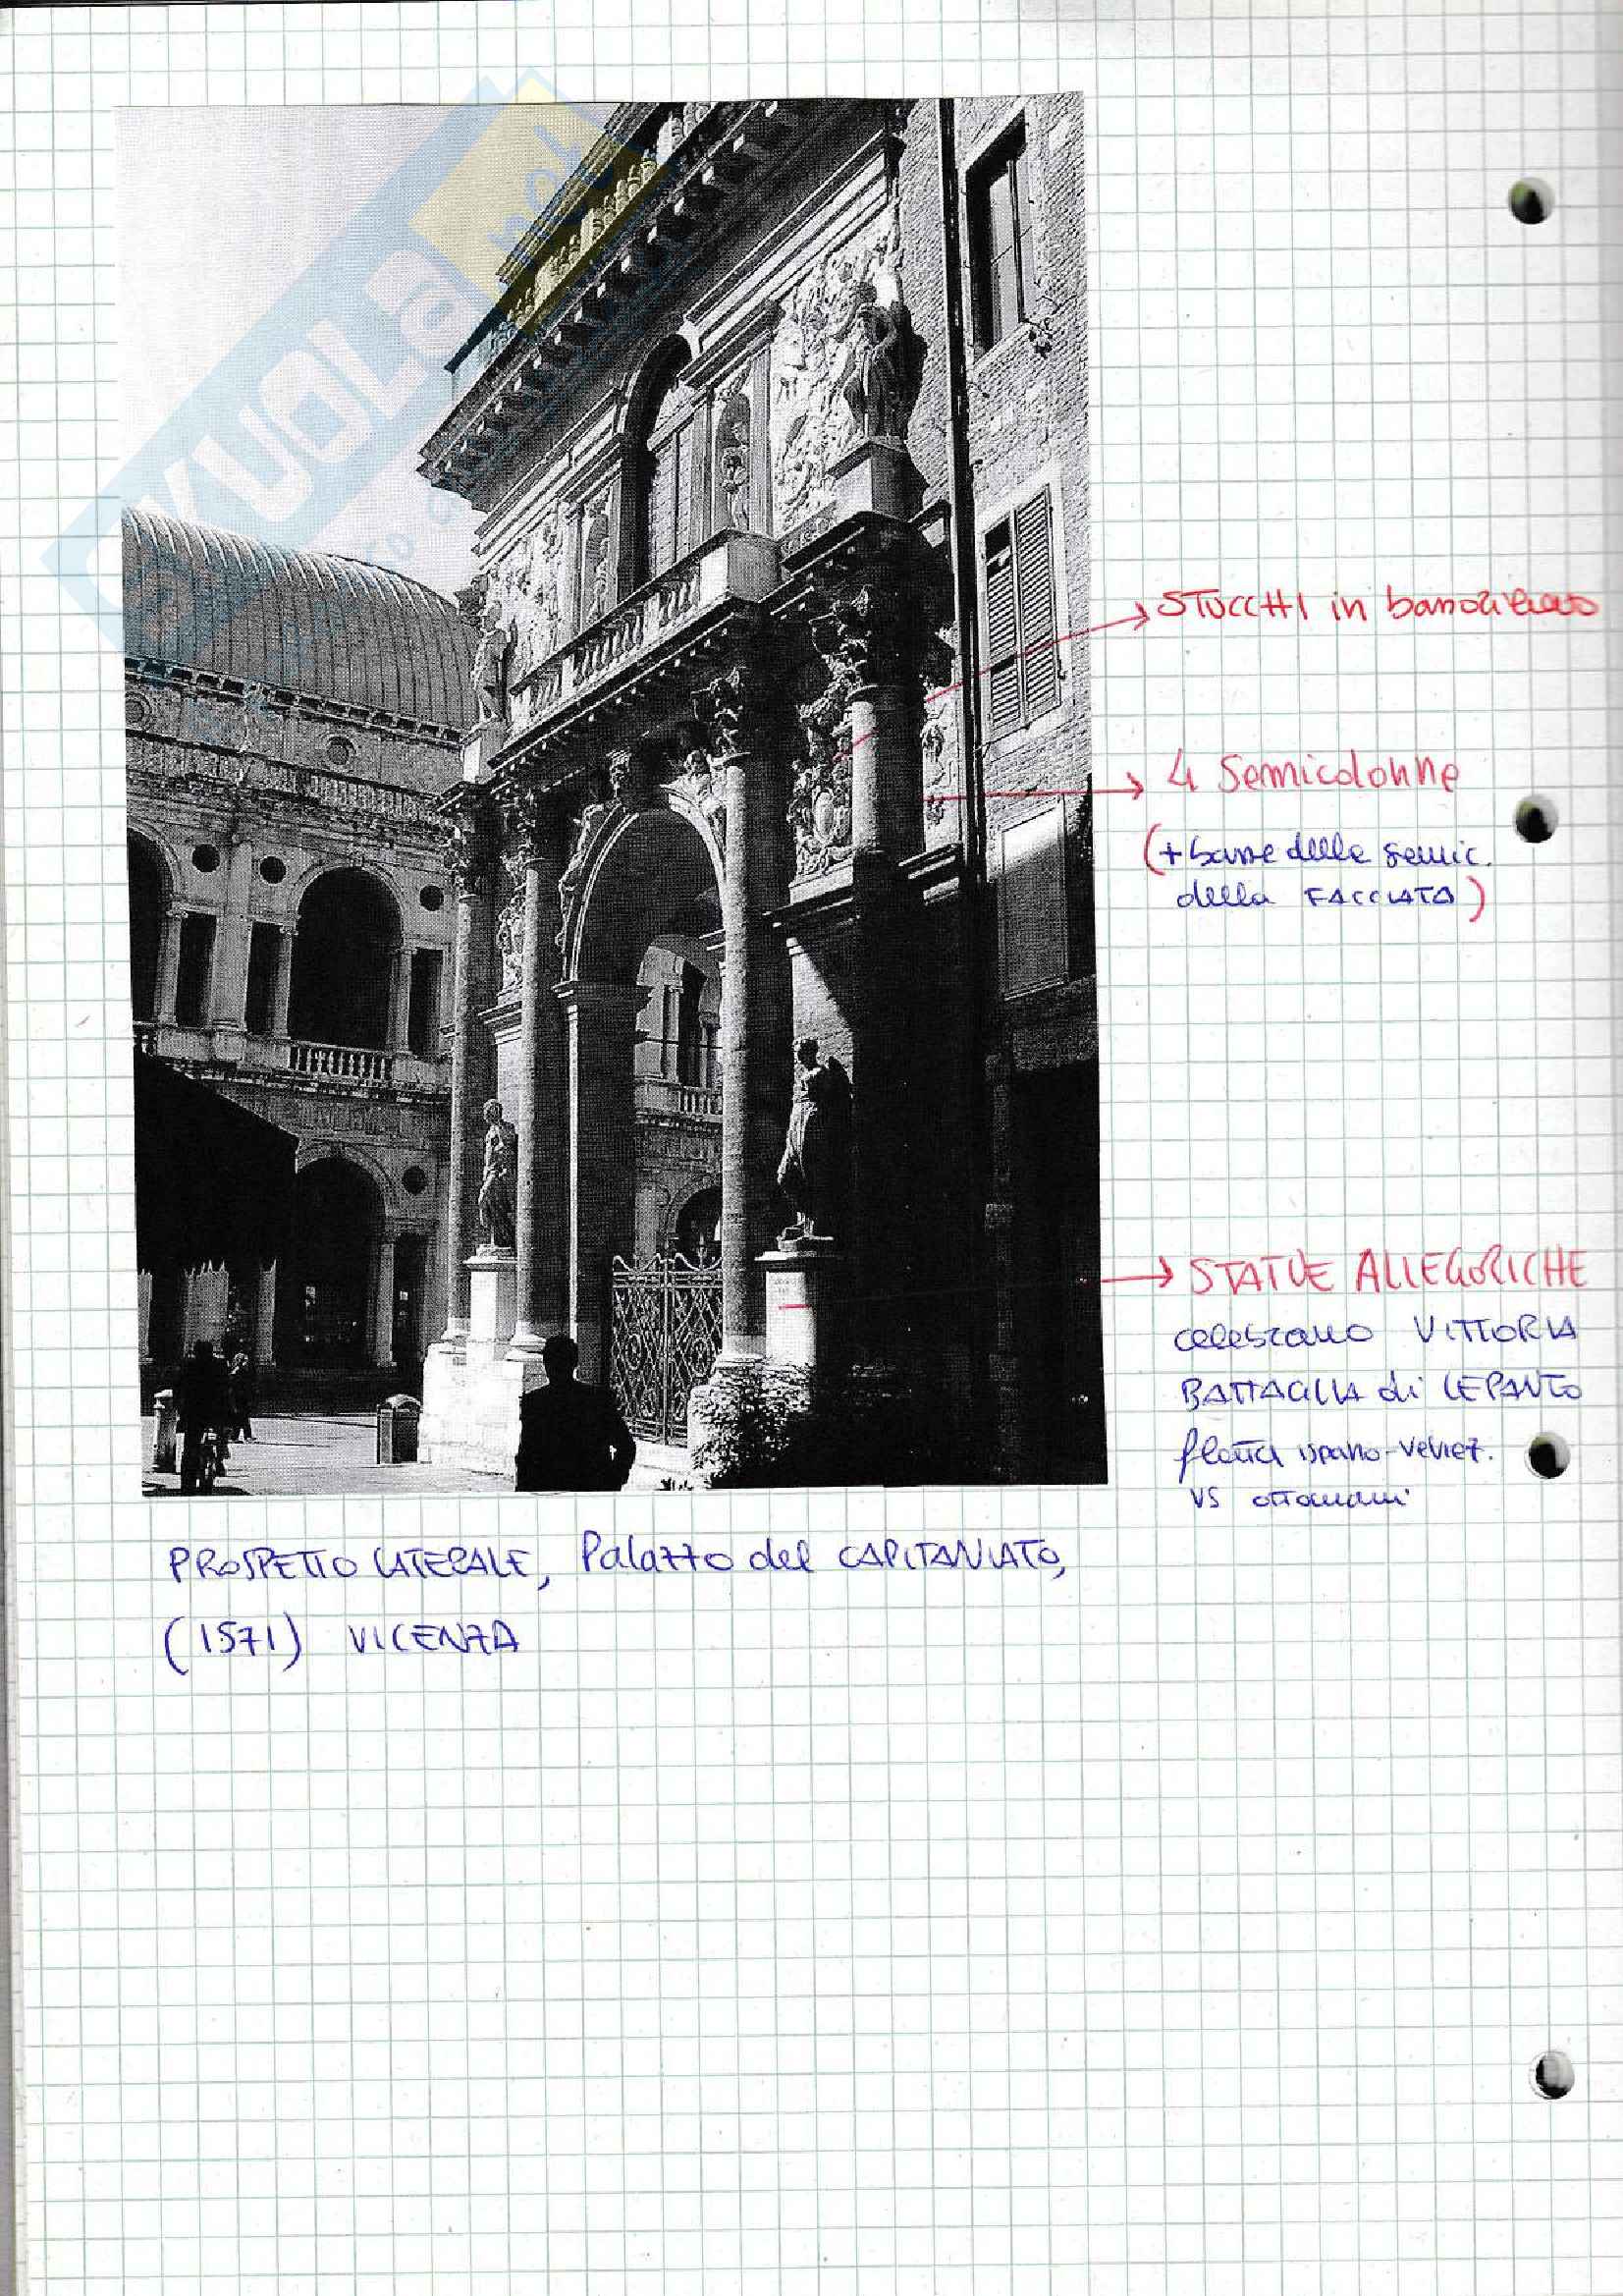 SKUOLA.net
STUCCHI in bassorilievo
4 Semicolonne
(+ basse delle semic.
della FACCIATA)
STATUE ALLEGORICHE
celebrano VITTORIA
BATTAGLIA di LEPANTO
flotta ispano-venez.
VS ottomani
PROSPETTO LATERALE, Palazzo del CAPITANIATO,
(1571) VICENZA